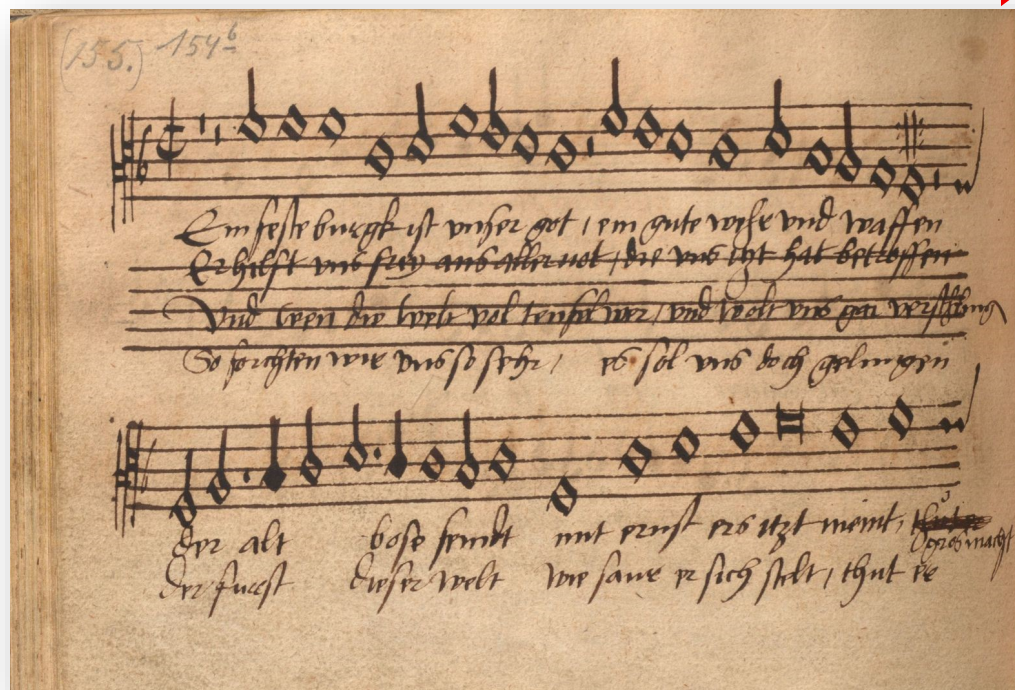 (155.) 154b
Ein feste burgk ist unser got / ein gute wehr und waffen
Er hilft uns frey aus aller not / die uns itzt hat betroffen
Und wen die welt vol teufel wer / und wolt uns gar
So forchten wir uns so sehr / es sol uns doch gelingen
der alt bose feindt mit ernst ers itzt meint,
gros macht
der furst dieser welt wie saur er sich stelt / thut er